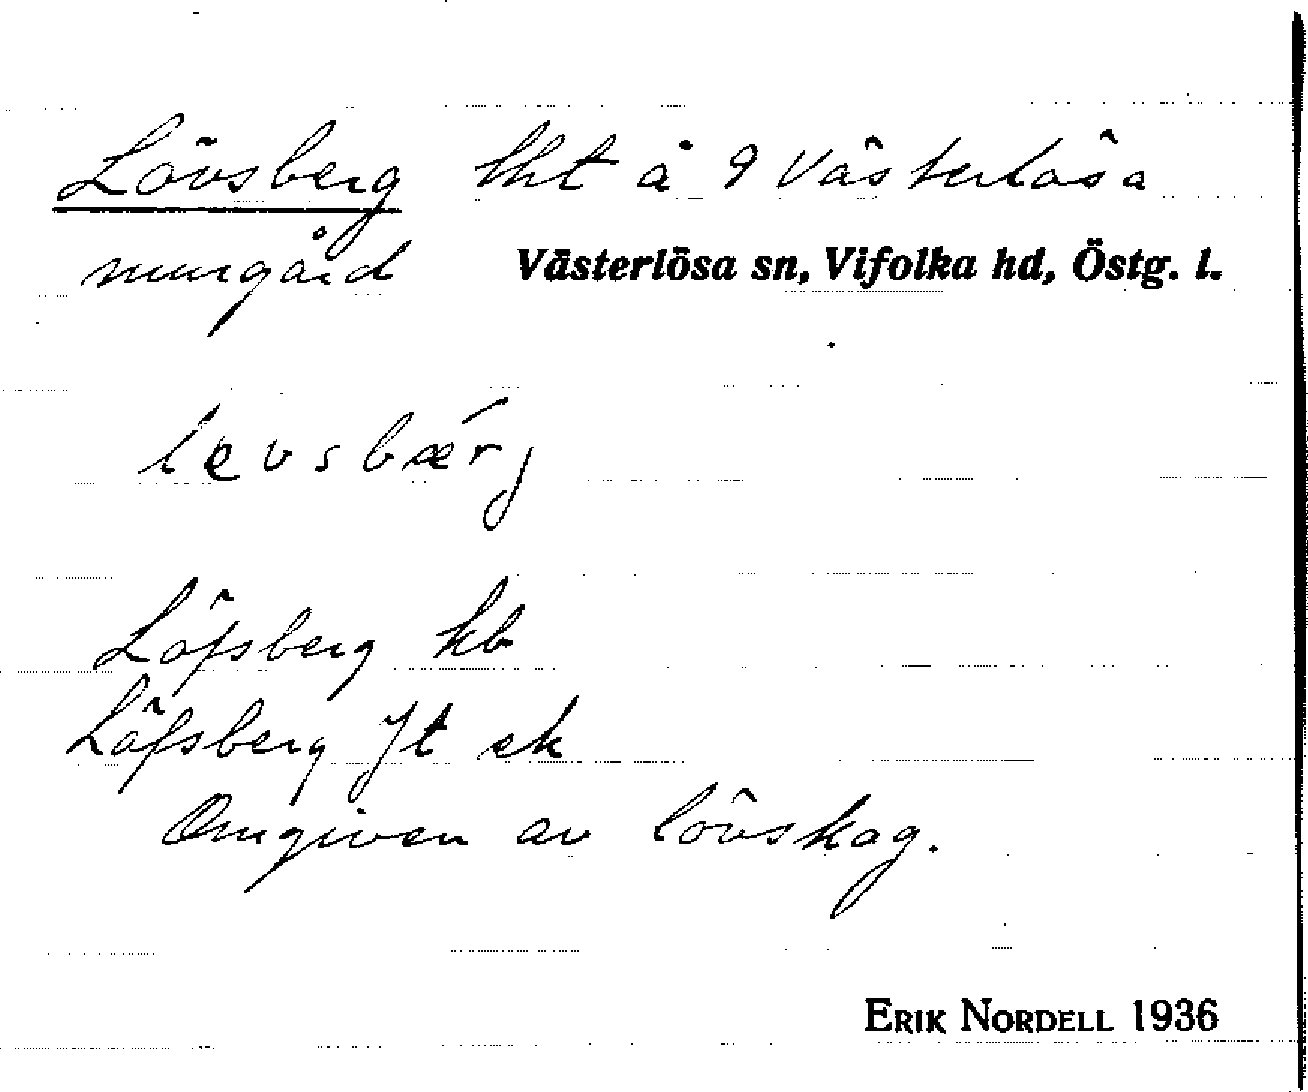 Lövsberg lht å 9 Västerlösa
murgård Västerlösa sn, Vifolka hd, Östg. l.
levsbærj
Löfsberg kb
Löfsberg Jt ek
Omgiven av lövskog.
ERIK NORDELL 1936